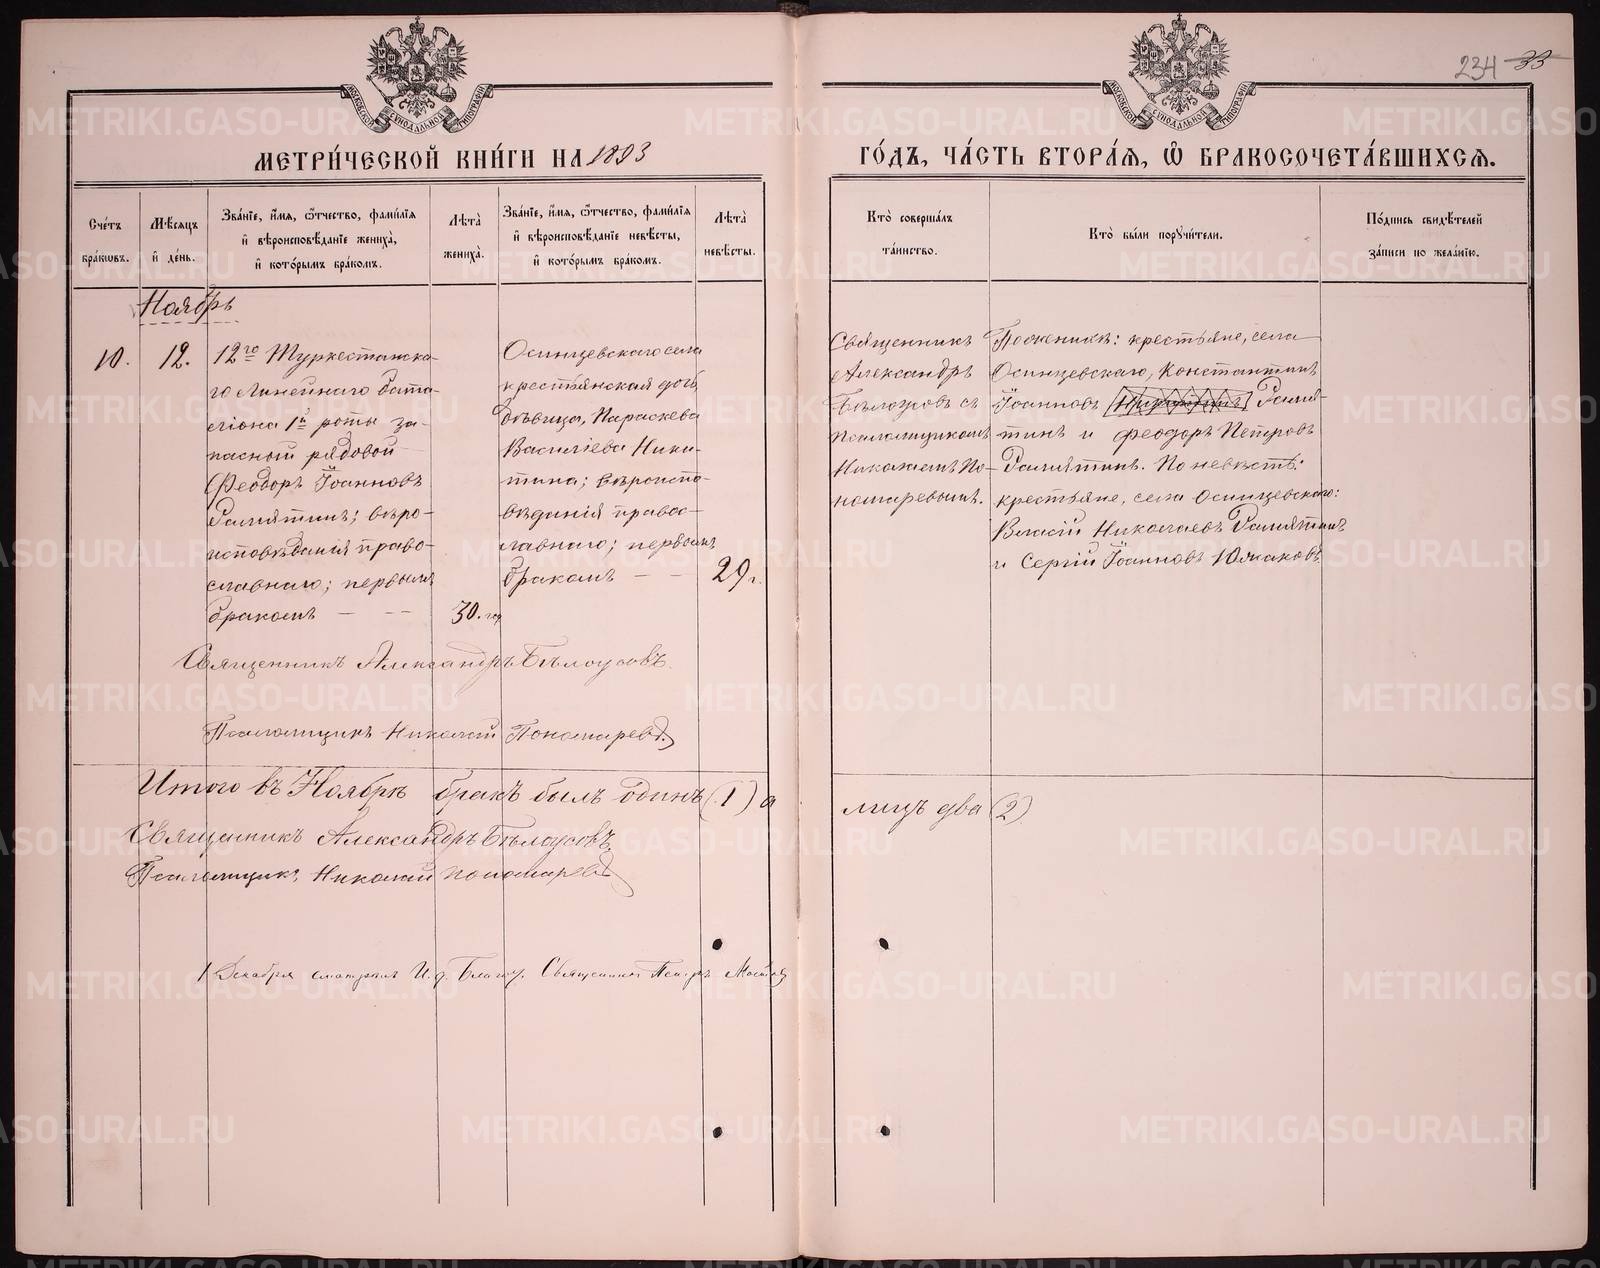 234 33
МОСКОВСКОЙ СѴНОДАЛЬНОЙ ТИПОГРАФІИ
МОСКОВСКОЙ СѴНОДАЛЬНОЙ ТИПОГРАФІИ
МЕТРИ́ЧЕСКОЙ КНИ́ГИ НА 1893
ГО́ДЪ, ЧА́СТЬ ВТОРА́Я, Ѡ БРАКОСОЧЕТА́ВШИХСЯ.
Сче́тъ
бра́ковъ.
Мѣ́сяцъ
и҆ де́нь.
Зва́нїе, и҆́мя, ѻ҆́тчество, фами́лїя
и҆ вѣроисповѣ́данїе жениха̀,
и҆ кото́рымъ бра́комъ.
Лѣта̀
жениха̀.
Зва́нїе, и҆́мя, ѻ҆́тчество, фами́лїя
и҆ вѣроисповѣ́данїе невѣ́сты,
и҆ кото́рымъ бра́комъ.
Лѣта̀
невѣ́сты.
Кто̀ соверша́лъ
та́инство.
Кто̀ бы́ли поручи́тели.
По́дпись свидѣ́телей
за́писи по жела́нїю.
Ноябрь
10.
12.
12го Туркестанска-
го Линейнаго бата-
ліона 1й роты за-
пасный рядовой
Феодоръ Іоанновъ
Замятинъ; вѣро-
исповѣданія право-
славнаго; первымъ
бракомъ — —
30. год
Осинцевскаго села
крестьянская дочь,
дѣвица, Параскева
Василіева Ники-
тина; вѣроиспо-
вѣданія правос-
лавнаго; первымъ
бракомъ — —
29 г.
Священникъ
Александръ
Бѣлоусовъ съ
Псаломщикомъ
Николаемъ По-
номаревымъ.
По женихѣ: крестьяне, села
Осинцевскаго, Константинъ
Іоанновъ Замя-
тинъ и Феодоръ Петровъ
Замятинъ. По невѣстѣ:
крестьяне, села Осинцевскаго:
Власій Николаевъ Замятинъ
и Сергій Іоанновъ Южаковъ.
Священникъ Александръ Бѣлоусовъ.
Псаломщикъ Николай Пономаревъ.
Итого въ Ноябрѣ бракъ былъ одинъ (1) а
лицъ два (2)
Священникъ Александръ Бѣлоусовъ.
Псаломщикъ Николай Пономаревъ
1 Декабря смотрѣлъ И. д. Благоч. Священникъ Петръ